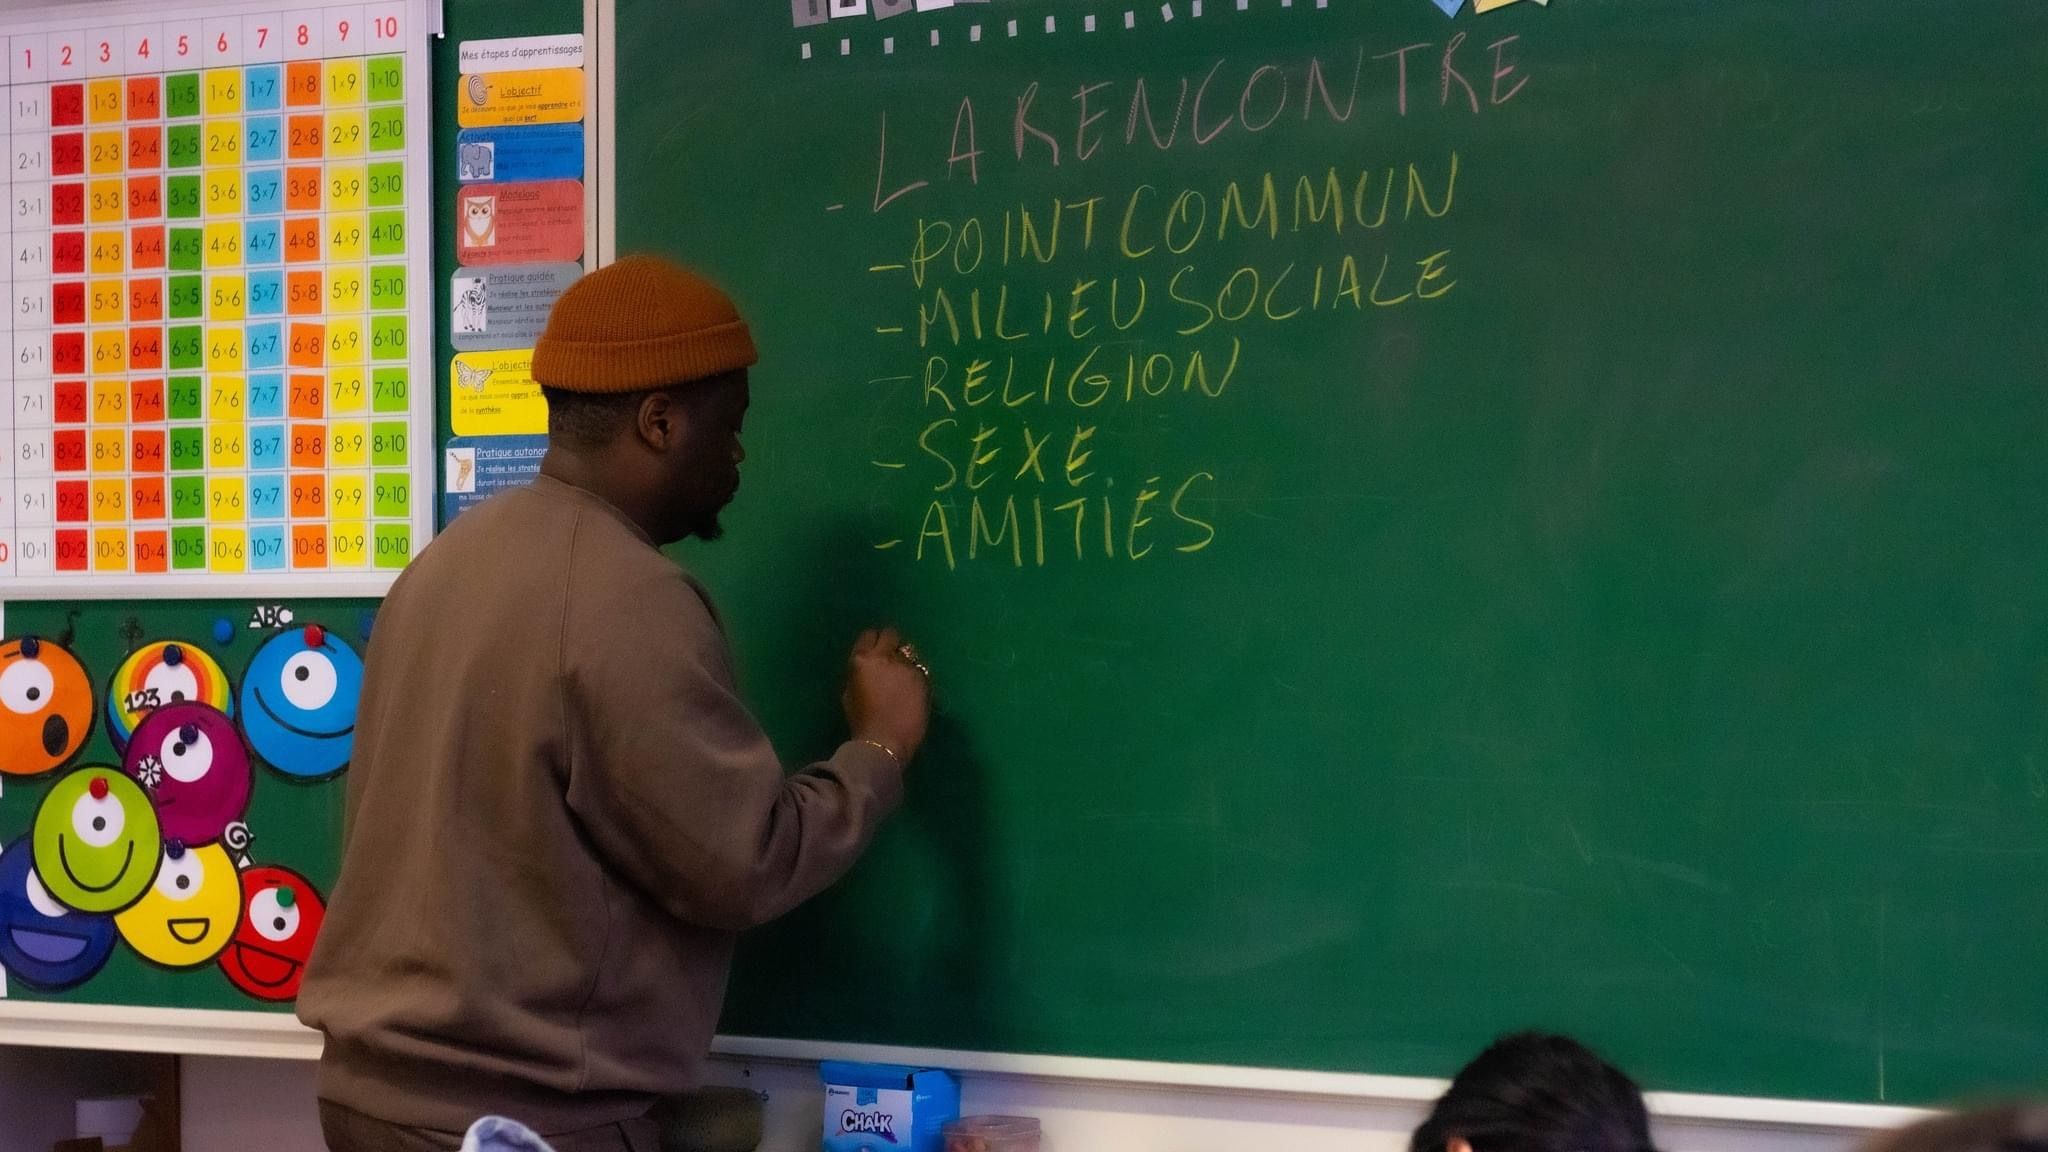 1 2 3 4 5 6 7 8 9 10
1×1 1×2 1×3 1×4 1×5 1×6 1×7 1×8 1×9 1×10
2×1 2×2 2×3 2×4 2×5 2×6 2×7 2×8 2×9 2×10
3×1 3×2 3×3 3×4 3×5 3×6 3×7 3×8 3×9 3×10
4×1 4×2 4×3 4×4 4×5 4×6 4×7 4×8 4×9 4×10
5×1 5×2 5×3 5×4 5×5 5×6 5×7 5×8 5×9 5×10
6×1 6×2 6×3 6×4 6×5 6×6 6×7 6×8 6×9 6×10
7×1 7×2 7×3 7×4 7×5 7×6 7×7 7×8 7×9 7×10
8×1 8×2 8×3 8×4 8×5 8×6 8×7 8×8 8×9 8×10
9×1 9×2 9×3 9×4 9×5 9×6 9×7 9×8 9×9 9×10
10×1 10×2 10×3 10×4 10×5 10×6 10×7 10×8 10×9 10×10
Mes étapes d'apprentissages
L'objectif
Je découvre ce que je vais apprendre et à
quoi ça sert
Activation des connaissances
Modelage
Pratique guidée
Je réalise les stratégies
L'objectif
Ensemble
ce que nous avons appris
de la synthèse
Pratique autonom
Je réalise les straté
durant les exercices
- LA RENCONTRE
- POINT COMMUN
- MILIEU SOCIALE
- RELIGION
- SEXE
- AMITIÉS
ABC
123
CHALK